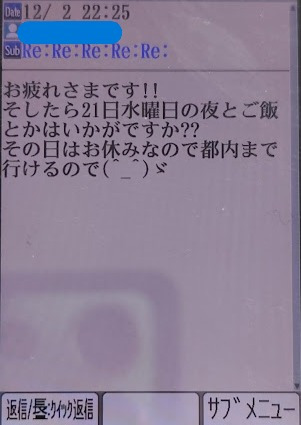 Date 12/ 2 22:25
Sub Re:Re:Re:Re:Re:
お疲れさまです!!
そしたら21日水曜日の夜とご飯
とかはいかがですか??
その日はお休みなので都内まで
行けるので(^_^)ゞ
返信/長:クイック返信
サブメニュー